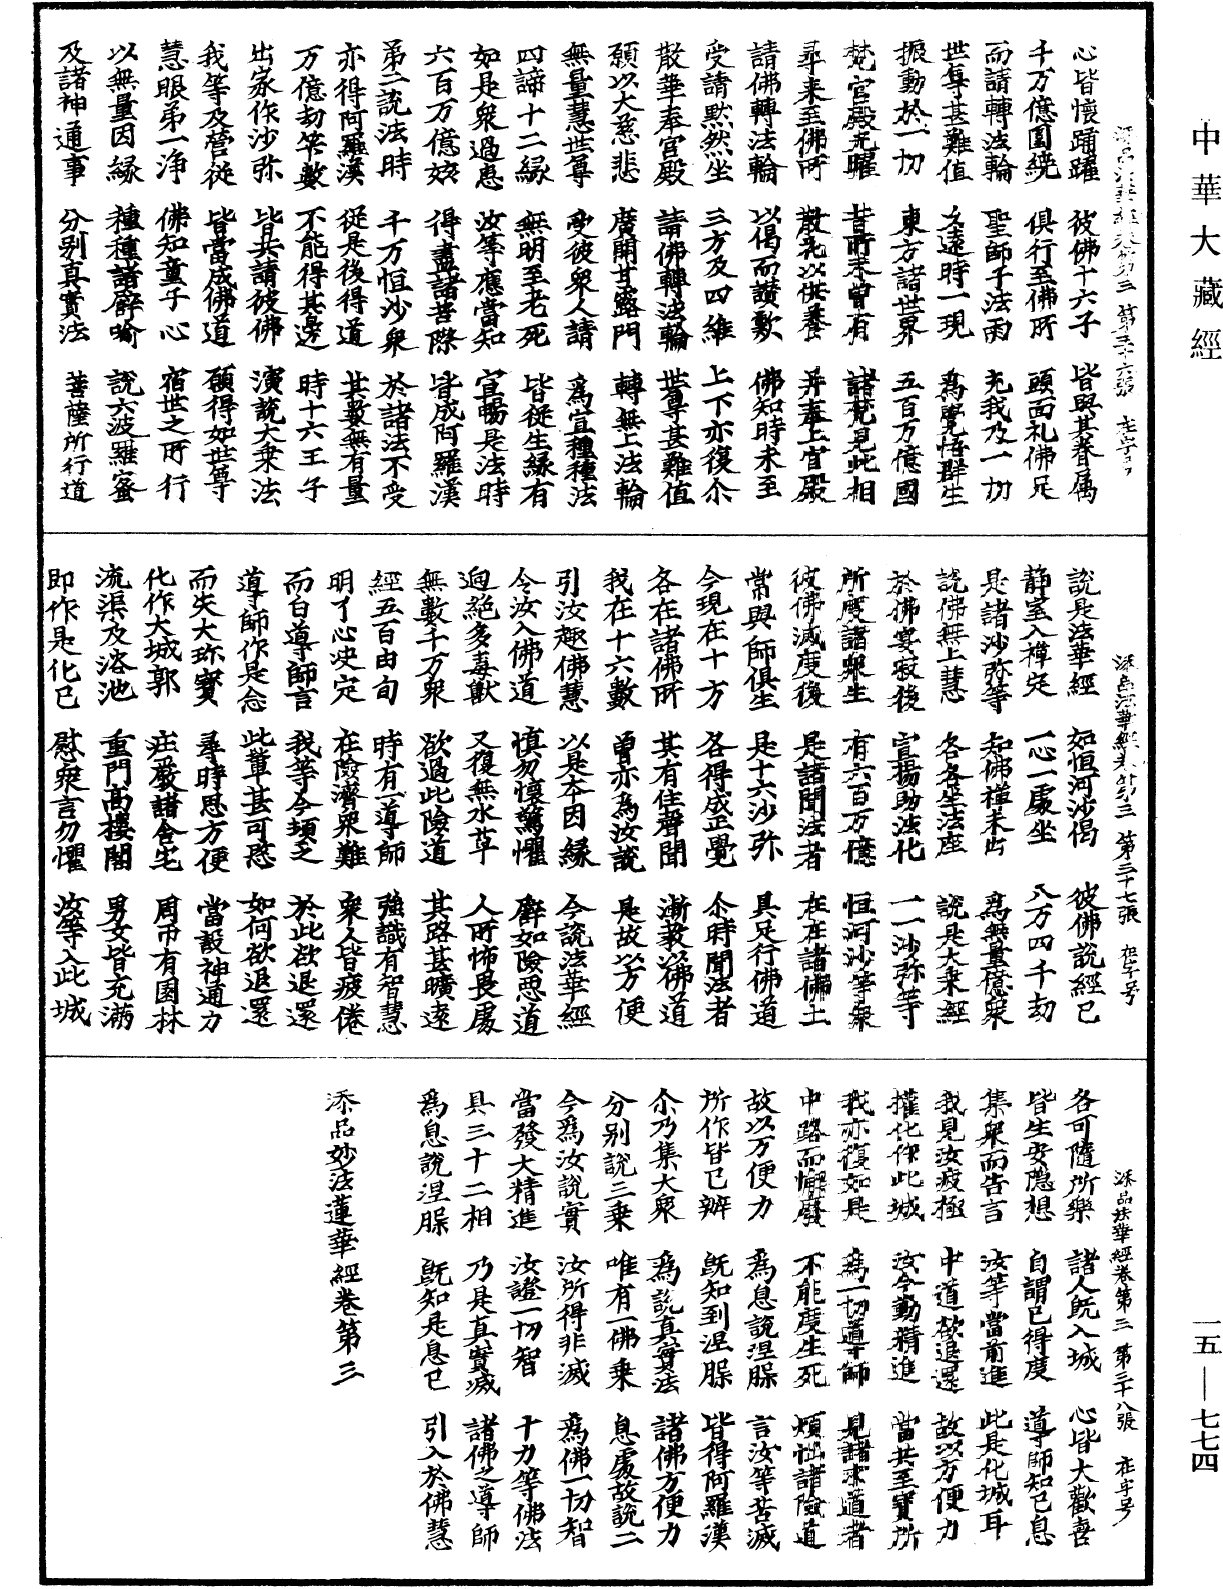 中華大藏經
添品法華經卷第三 第三十六張 在字号
心皆懷踊躍 彼佛十六子 皆與其眷屬
千万億圍繞 俱行至佛所 頭面礼佛足
而請轉法輪 聖師子法雨 充我及一切
世尊甚難值 久遠時一現 爲覺悟群生
振動於一切 東方諸世界 五百万億國
梵宮殿光曜 昔所未曾有 諸梵見此相
尋来至佛所 散花以供養 并奉上宮殿
請佛轉法輪 以偈而讃歎 佛知時未至
受請黙然坐 三方及四維 上下亦復尒
散華奉宮殿 請佛轉法輪 世尊甚難值
願以大慈悲 廣開甘露門 轉無上法輪
無量慧世尊 受彼衆人請 爲宣種種法
四諦十二緣 無明至老死 皆從生緣有
如是衆過患 汝等應當知 宣暢是法時
六百万億姟 得盡諸苦際 皆成阿羅漢
第二說法時 千万恒沙衆 於諸法不受
亦得阿羅漢 從是後得道 其數無有量
万億劫筭數 不能得其邊 時十六王子
出家作沙弥 皆共請彼佛 演說大乗法
我等及營從 皆當成佛道 願得如世尊
慧眼第一浄 佛知童子心 宿世之所行
以無量因緣 種種諸譬喻 說六波羅蜜
及諸神通事 分別真實法 菩薩所行道
添品法華經卷第三 第三十七張 在字号
說是法華經 如恒河沙偈 彼佛說經已
静室入禪定 一心一處坐 八万四千劫
是諸沙弥等 知佛禪未出 爲無量億衆
說佛無上慧 各各坐法座 說是大乗經
於佛宴寂後 宣揚助法化 一一沙弥等
所度諸衆生 有六百万億 恒河沙等衆
彼佛滅度後 是諸聞法者 在在諸佛土
常與師俱生 是十六沙弥 具足行佛道
今現在十方 各得成正覺 尒時聞法者
各在諸佛所 其有住聲聞 漸教以佛道
我在十六數 曾亦爲汝說 是故以方便
引汝趣佛慧 以是本因緣 今說法華經
令汝入佛道 慎勿懷驚懼 譬如險惡道
逈絶多毒獸 又復無水草 人所怖畏處
無數千万衆 欲過此險道 其路甚曠遠
經五百由旬 時有一導師 強識有智慧
明了心決定 在險濟衆難 衆人皆疲倦
而白導師言 我等今頓乏 於此欲退還
導師作是念 此輩甚可愍 如何欲退還
而失大珎寳 尋時思方便 當設神通力
化作大城郭 莊嚴諸舍宅 周帀有園林
流渠及浴池 重門高樓閣 男女皆充滿
即作是化已 慰衆言勿懼 汝等入此城
添品法華經卷第三 第三十八張 在字号
各可隨所樂 諸人旣入城 心皆大歡喜
皆生安隱想 自謂已得度 導師知已息
集衆而告言 汝等當前進 此是化城耳
我見汝疲極 中道欲退還 故以方便力
權化作此城 汝今勤精進 當共至寳所
我亦復如是 爲一切導師 見諸求道者
中路而懈廢 不能度生死 煩惱諸險道
故以方便力 爲息說涅槃 言汝等苦滅
所作皆已辦 旣知到涅槃 皆得阿羅漢
尒乃集大衆 爲說真實法 諸佛方便力
分別說三乗 唯有一佛乗 息處故說二
今爲汝說實 汝所得非滅 爲佛一切智
當發大精進 汝證一切智 十力等佛法
具三十二相 乃是真實滅 諸佛之導師
爲息說涅槃 旣知是息已 引入於佛慧
添品妙法蓮華經卷第三
一五—七七四